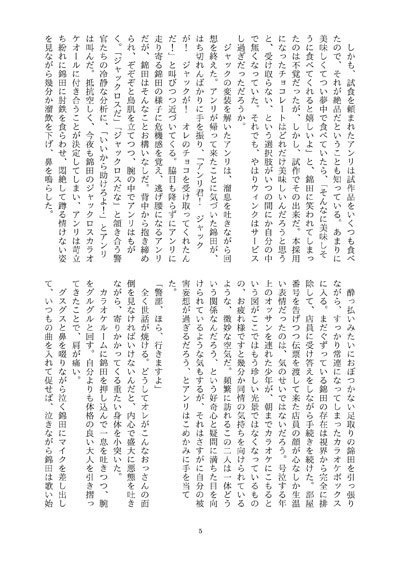 しかも、試食を頼まれたアンリは試作品をいくつも食べ
たので、それが絶品だということも知っている。あまりに
美味しくてつい夢中で食べていたら、「そんなに美味しそ
うに食べてくれると嬉しいよ」と、錦田に笑われてしまっ
たのは不覚だったが、しかし、試作でその出来だ。本採用
になったチョコレートはどれだけ美味しいんだろうと思う
と、受け取らない、という選択肢がいつの間にか自分の中
で無くなっていた。それでも、やはりウィンクはサービス
し過ぎだっただろうか。
ジャックの変装を解いたアンリは、溜息を吐きながら回
想を終えた。アンリが帰って来たことに気づいた錦田が、
はち切れんばかりに手を振り、「アンリ君！　ジャック
が！　ジャックが！　オレのチョコを受け取ってくれたん
だ！」と叫びつつ近づいてくる。脇目も降らずにアンリに
走り寄る錦田の様子に危機感を覚え、逃げ腰になるアンリ
だが、錦田はそんなことお構いなしだ。背中から抱き締め
られ、ぞぞぞと鳥肌を立てつつ、腕の中でアンリはもが
く。「ジャックロスだ」「ジャックロスだな」と頷き合う警
官たちの冷静な分析に、「いいから助けろよー！」とアンリ
は叫んだ。抵抗空しく、今夜も錦田のジャックロスカラオ
ケオールに付き合うことが決定してしまい、アンリは苛立
ち紛れに錦田に肘鉄を食らわせ、悶絶して蹲る情けない姿
を見ながら幾分か溜飲を下げ、鼻を鳴らした。
酔っ払いみたいにおぼつかない足取りの錦田を引っ張り
ながら、すっかり常連になってしまったカラオケボックス
に入る。まだぐすっている錦田の存在は視界から完全に排
除して、店員に受け答えをしながら手続きを続けた。部屋
番号を告げつつ伝票を渡して来た店員の顔が心なしか生温
い表情だったのは、気のせいではないだろう。号泣する年
上のオッサンを連れた少年が、朝までカラオケにこもると
いう図がここではもう珍しい光景ではなくなっているもの
の、お疲れ様ですと幾分か同情の気持ちを向けられている
ような、微妙な空気だ。頻繁に訪れるこの二人は一体どう
いう関係なんだろう、という好奇心と疑問に満ちた目を向
けられているような気もするが、それはさすがに自分の被
害妄想が過ぎるだろう、とアンリはこめかみに手を当て
た。
「警部、ほら、行きますよ」
全く世話が焼ける。どうしてオレがこんなおっさんの面
倒を見なければいけないんだと、内心で盛大に悪態を吐き
ながら、寄りかかってくる重たい身体を小突いた。
カラオケルームに錦田を押し込んで一息を吐きつつ、腕
をグルグルと回す。自分よりも体格の良い大人を引き摺っ
てきたことで、肩が痛い。
グスグスと鼻を啜りながら泣く錦田にマイクを差し出し
て、いつもの曲を入れて促せば、泣きながら錦田は歌い始
5